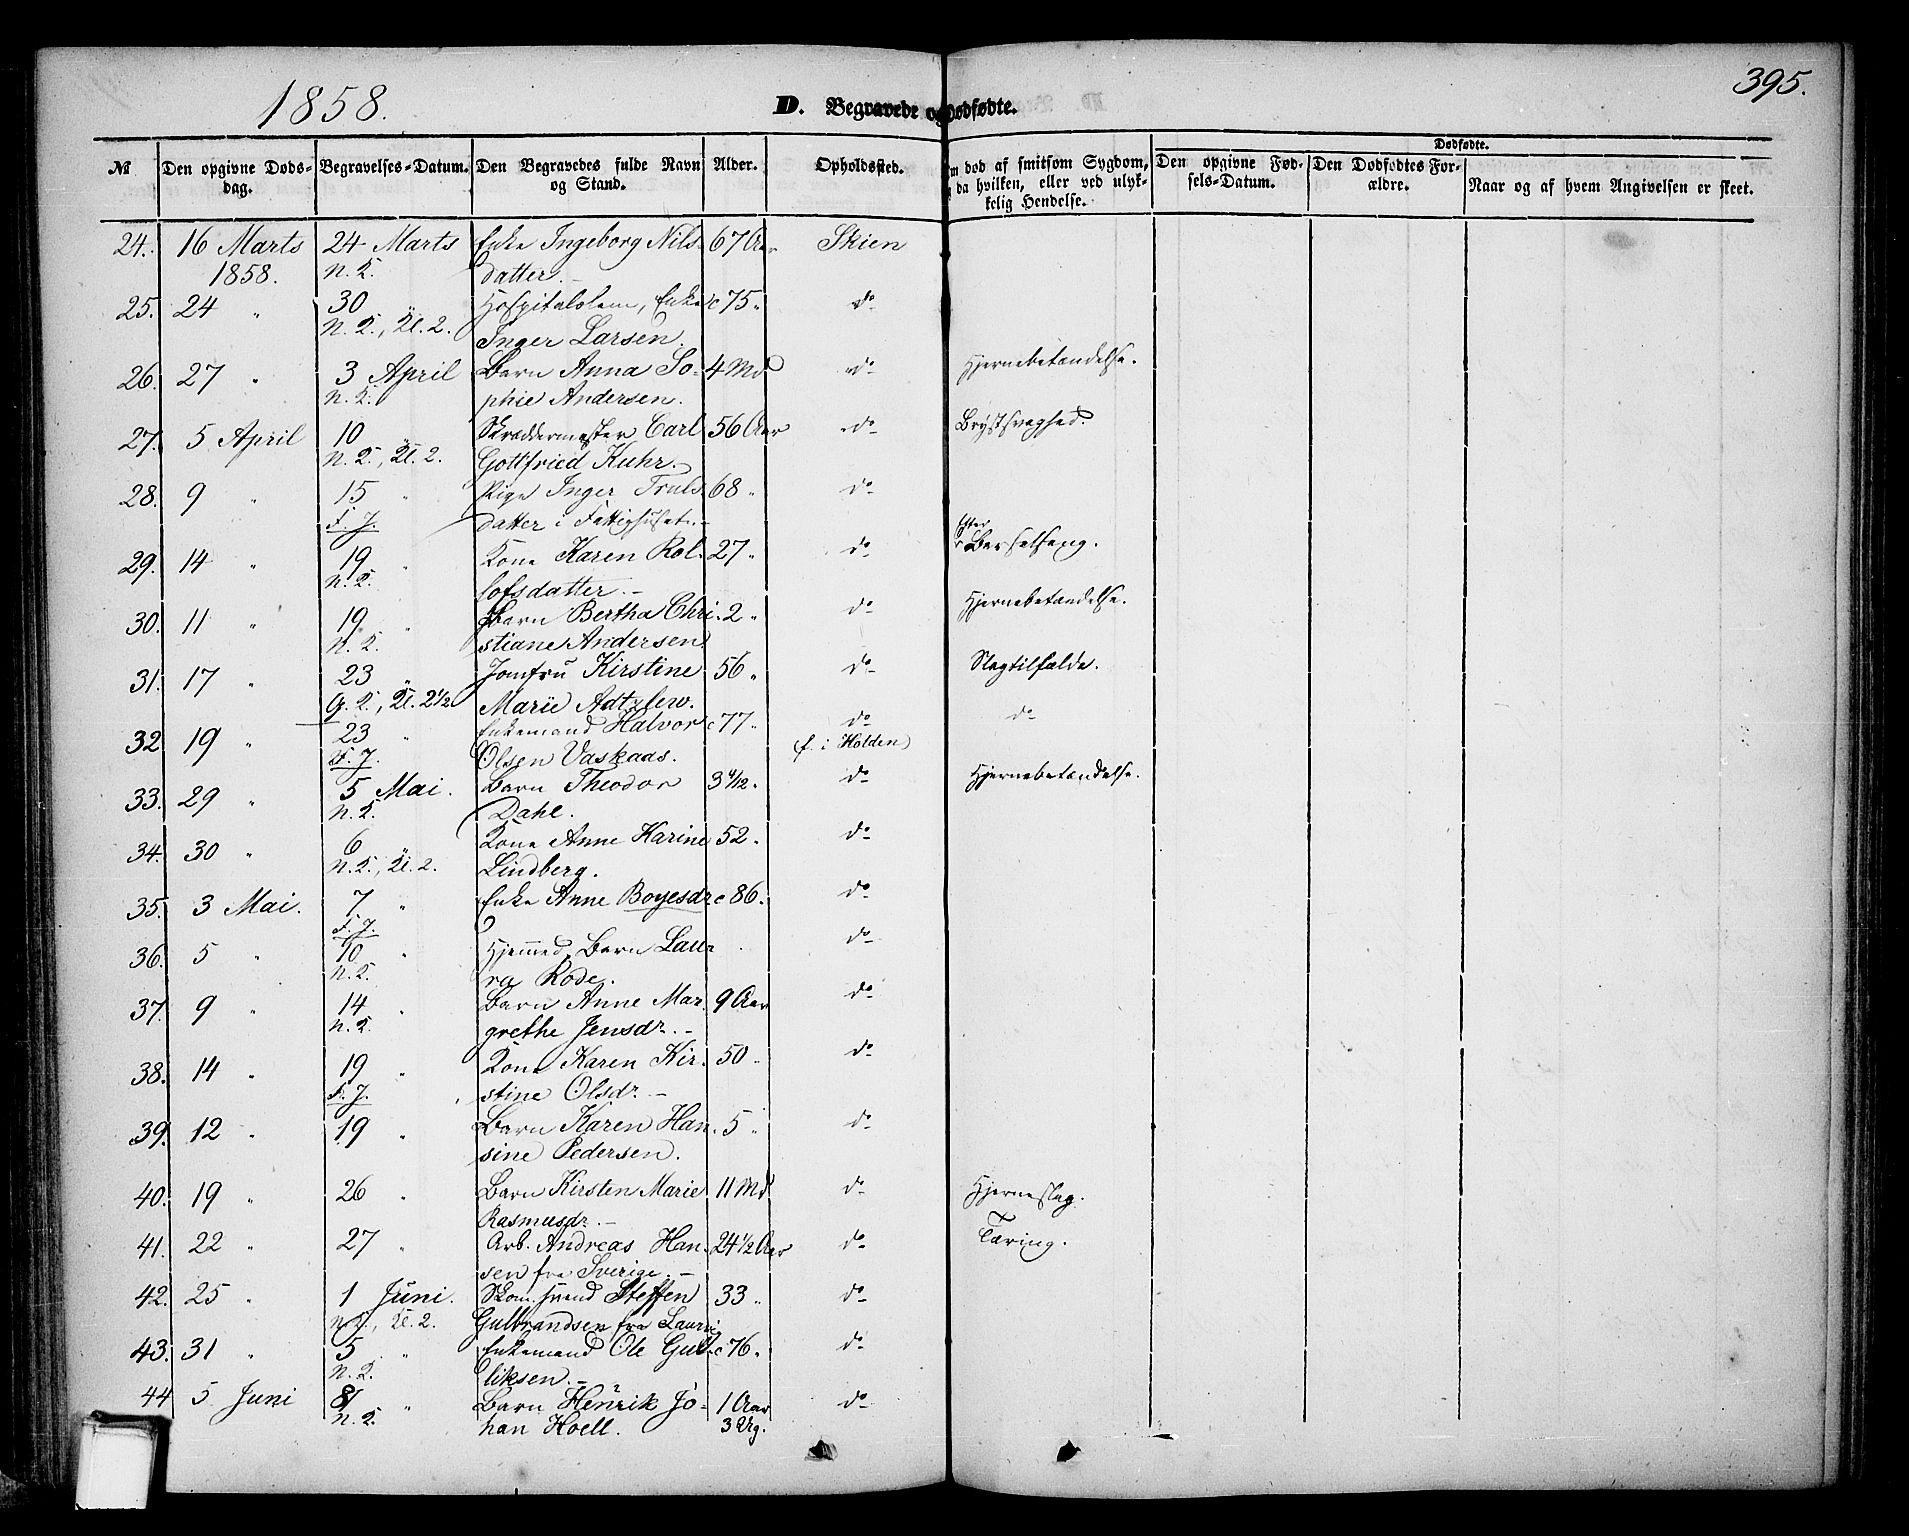 1858.
D. Begravede og Dødfødte.
395.
№ Den opgivne Døds-dag. Begravelses-Datum. Den Begravedes fulde Navn og Stand. Alder. Opholdsted. Om død af smitsom Sygdom, og da hvilken, eller ved ulykkelig Hendelse. Dødfødte. Den opgivne Fødsels-Datum. Den Dødfødtes Forældre. Naar og af hvem Angivelsen er skeet.
24. 16 Marts 24 Marts Enke Ingeborg Nils- 67 Aar Skien
1858. N. K. datter.
25. 24 " 30 " Hospitalslem, Enke c 75 " do
N. K., Kl. 2. Inger Larsen.
26. 27 " 3 April Barn Anna So- 4 Md do Hjernebetændelse.
N. K. phie Andersen.
27. 5 April 10 " Skræddermester Carl 56 Aar do Brystsvaghed.
N. K., Kl. 2. Gottfried Kuhr.
28. 9 " 15 " Pige Inger Truls- 68 " do
F. J. datter i Fattighuset.
29. 14 " 19 " Kone Karen Rol- 27 " do Efter Barselseng.
N. K. lofsdatter.
30. 11 " 19 " Barn Bertha Chri- 2 " do Hjernebetændelse.
N. K. stiane Andersen.
31. 17 " 23 " Jomfru Kirstine 56 " do Slagtilfælde.
G. K., Kl. 2 1/2 Marie Adtzlew.
32 19 " 23 " Enkemand Halvor c 77 " do do
F. J. Olsen Vaskaas. (f. i Holden)
33. 29 " 5 Mai. Barn Theodor 3 4/12 " do Hjernebetændelse.
N. K. Dahl.
34. 30 " 6 " Kone Anne Karine 52 " do
N. K., Kl. 2. Lindberg.
35. 3 Mai. 7 " Enke Anne Boyesdr c 86. do
F. J.
36. 5 " 10 " Hjemmed. Barn Lau- " do
N. K. ra Rode.
37. 9 " 14 " Barn Anne Mar- 9 Aar do
N. K. grethe Jensdr.
38. 14 " 19 " Kone Karen Kir- 50 " do
F. J. stine Olsdr.
39. 12 " 19 " Barn Karen Han- 5 " do
sine Pedersen.
40. 19 " 26 " Barn Kirsten Marie 11 Md do Hjerneslag.
Rasmusdr.
41. 22 " 27 " Arb. Andreas Han- 24 1/2 Aar do Tæring.
sen fra Sverige.
42. 25 " 1 Juni. Skom. svend Steffen 33 " do
N. K., Kl. 2. Gulbrandsen fra Laurv.
43. 31 " 5 " Enkemand Ole Gul- c 76 " do
N. K. liksen.
44 5 Juni 8 " Barn Henrik Jo- 1 Aar do
N. K. han Hoell. 3 Ug.